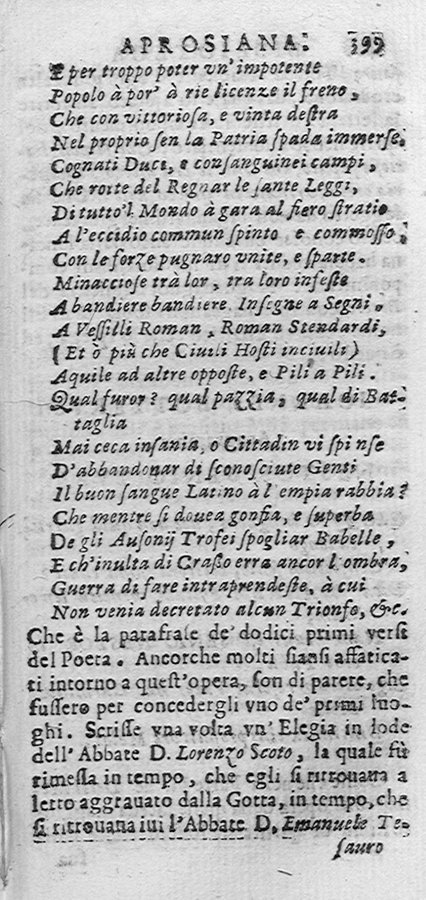 APROSIANA. 399
E per troppo poter vn' impotente
Popolo à por' à rie licenze il freno,
Che con vittoriosa, e vinta destra
Nel proprio sen la Patria spada immerse.
Cognati Duci, e consanguinei campi,
Che rotte del Regnar le sante Leggi,
Di tutto'l Mondo à gara al fiero stratio
A l'eccidio commun spinto, e commosso,
Con le forze pugnaro vnite, e sparte.
Minacciose trà lor, tra loro infeste
A bandiere bandiere. Insegne a Segni.
A Vessilli Roman, Roman Stendardi,
(Et ò più che Ciuili Hosti inciuili)
Aquile ad altre opposte, e Pili a Pili.
Qual furor? qual pazzia, qual di Bat-
taglia
Mai ceca insania, o Cittadin vi spinse
D'abbandonar di sconosciute Genti
Il buon sangue Latino à l'empia rabbia?
Che mentre si douea gonfia, e superba
De gli Ausonij Trofei spogliar Babelle,
E ch'inulta di Crasso erra ancor l'ombra,
Guerra di fare intraprendeste, à cui
Non venia decretato alcun Trionfo, &c.
Che è la parafrase de' dodici primi versi
del Poeta. Ancorche molti siansi affatica-
ti intorno a quest'opera, son di parere, che
fussero per concedergli vno de' primi luo-
ghi. Scrisse vna volta vn' Elegia in lode
dell' Abbate D. Lorenzo Scoto, la quale fù
rimessa in tempo, che egli si ritrouaua a
letto aggrauato dalla Gotta, in tempo, che
si ritrouaua iui l'Abbate D. Emanuele Te-
sauro